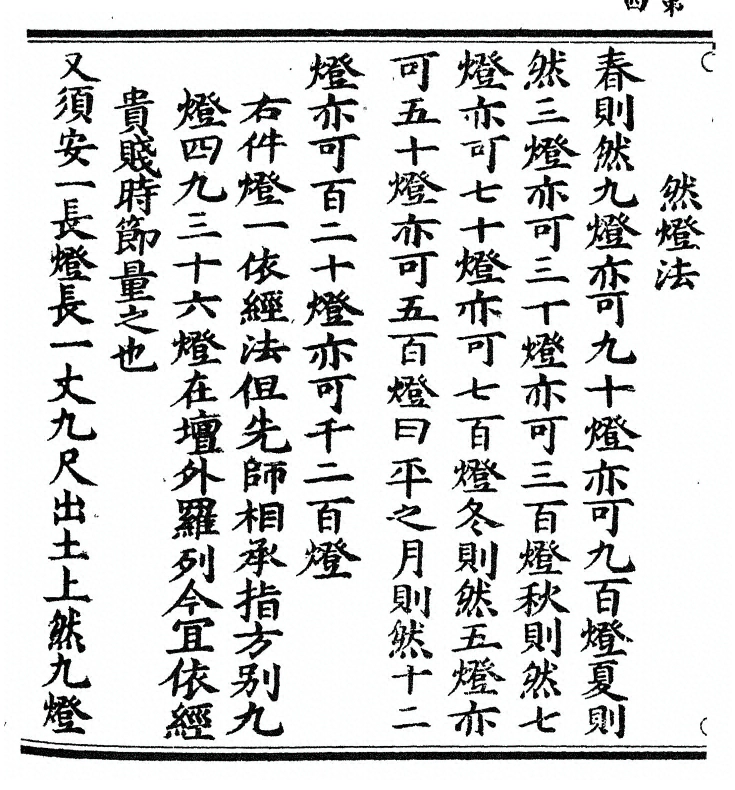 然燈法
春則然九燈亦可九十燈亦可九百燈夏則
然三燈亦可三十燈亦可三百燈秋則然七
燈亦可七十燈亦可七百燈冬則然五燈亦
可五十燈亦可五百燈曰平之月則然十二
燈亦可百二十燈亦可千二百燈
右件燈一依經法但先師相承指方别九
燈四九三十六燈在壇外羅列今冝依經
貴賤時節量之也
又須安一長燈長一丈九尺出土上然九燈